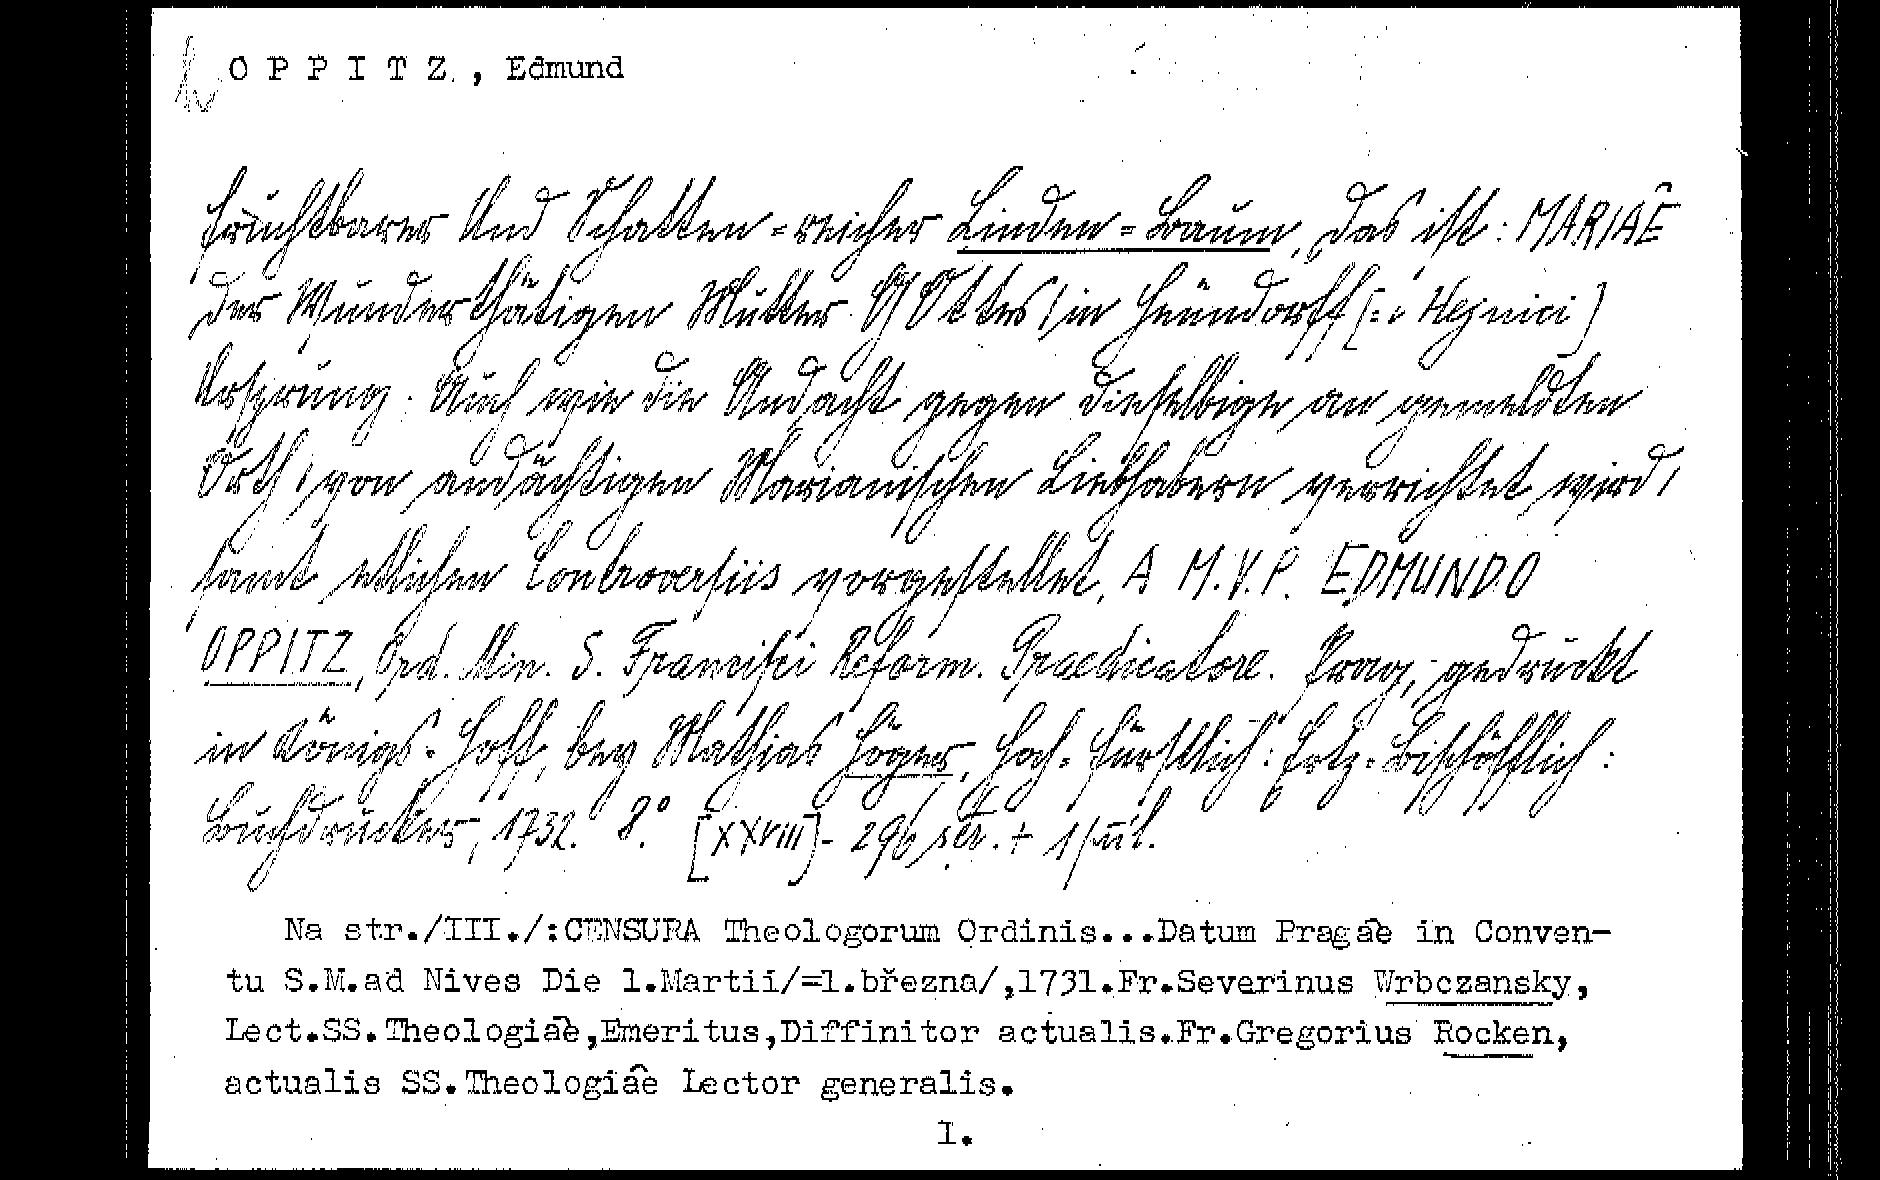 OPPITZ, Edmund
Fruchtbarer Und Schatten-reicher Linden-Baum, Das ist: MARIAE
Der Wunderthätigen Mutter GOttes/ in Heündorff [: Hejnici]
Ursprung. Auch wie die Andacht gegen dieselbige an gemeldten
Orth/ von andächtigen Marianischen Liebhabern verrichtet wird/
samt etlichen Controversiis vorgestellet, A M.V.P. EDMUNDO
OPPITZ, Ord. Min. S. Francisci Reform. Praedicatore. Prag, gedruckt
in Königs-Hoff, bey Mathias Höger, Hoch-Fürstlich: Ertz-Bischöfflich:
Buchdrucker, 1732. 8° [XXVIII]-296 str. + 1
Na str./III./:CENSURA Theologorum Ordinis...Datum Pragae in Conven-
tu S.M.ad Nives Die 1.Martii/=1.března/,1731.Fr.Severinus Wrbczansky,
Lect.SS.Theologiae,Emeritus,Diffinitor actualis.Fr.Gregorius Rocken,
actualis SS.Theologiae Lector generalis.
1.